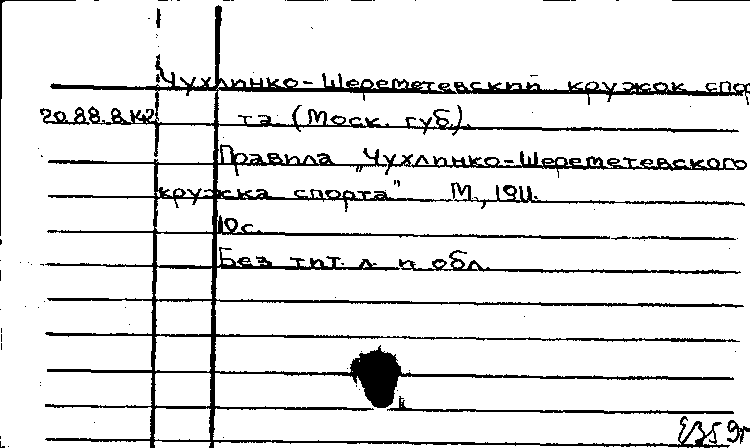 Чухлинко-Шереметевский кружок спор
20.88.8.К2 та (Моск. губ.).
Правила "Чухлинко-Шереметевского
кружка спорта" М., 1911.
10с.
Без тит. л. и обл.